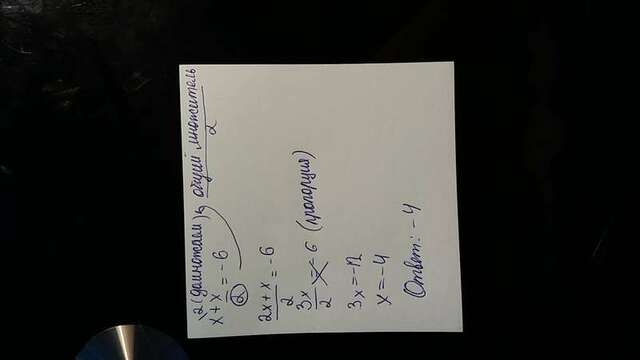 \2 (домножаем) общий множитель
2
x + x/2 = -6
2x + x/2 = -6
3x/2 = -6 (пропорция)
3x = -12
x = -4
Ответ: -4